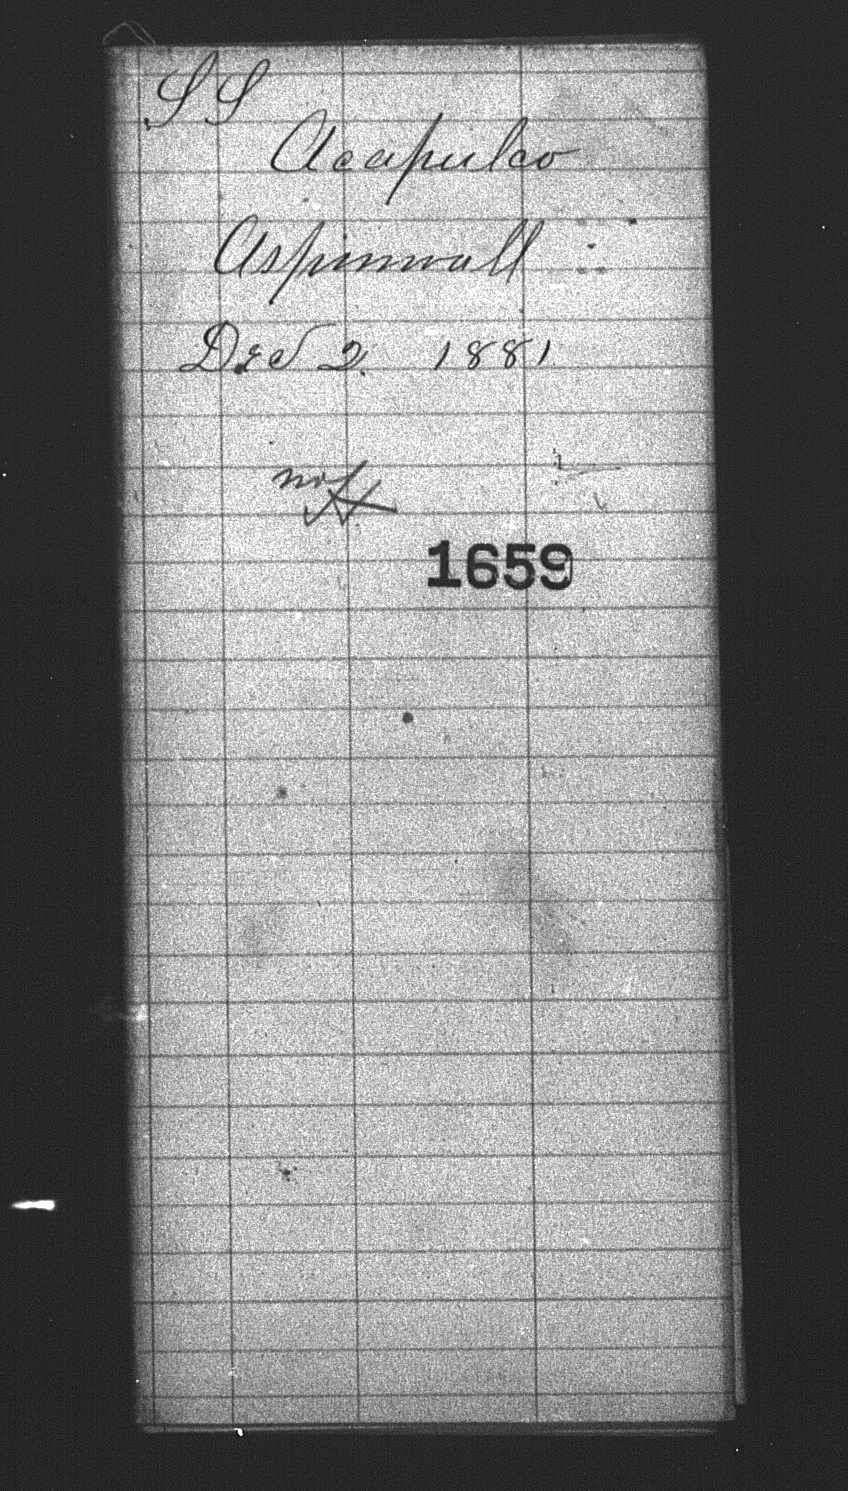 SS
Acapulco
Aspinwall
Dec 2. 1881
1659